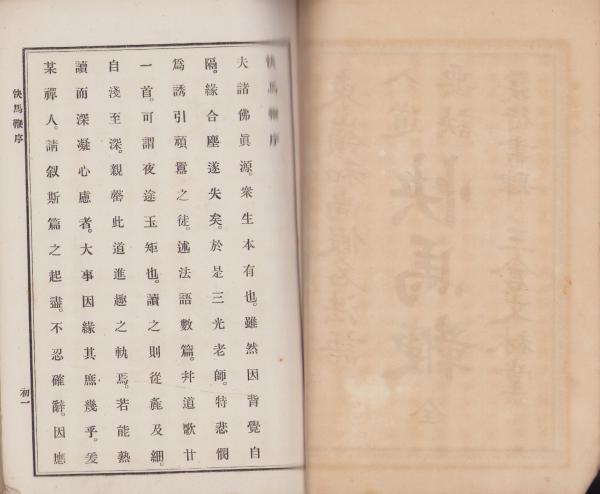 快馬鞭序
夫諸佛眞源。衆生本有也。雖然因背覺自
隔。緣合塵遂失矣。於是三光老師。特悲憫
爲誘引頑嚚之徒。述法語數篇。幷道歌廿
一首。可謂夜途玉矩也。讀之則從麁及細。
自淺至深。親罄此道進趣之軌焉。若能熟
讀而深凝心慮者。大事因緣其庶幾乎。爰
某禪人。請叙斯篇之起盡。不忍確辭。因應
快馬鞭序
初一
快馬鞭
全